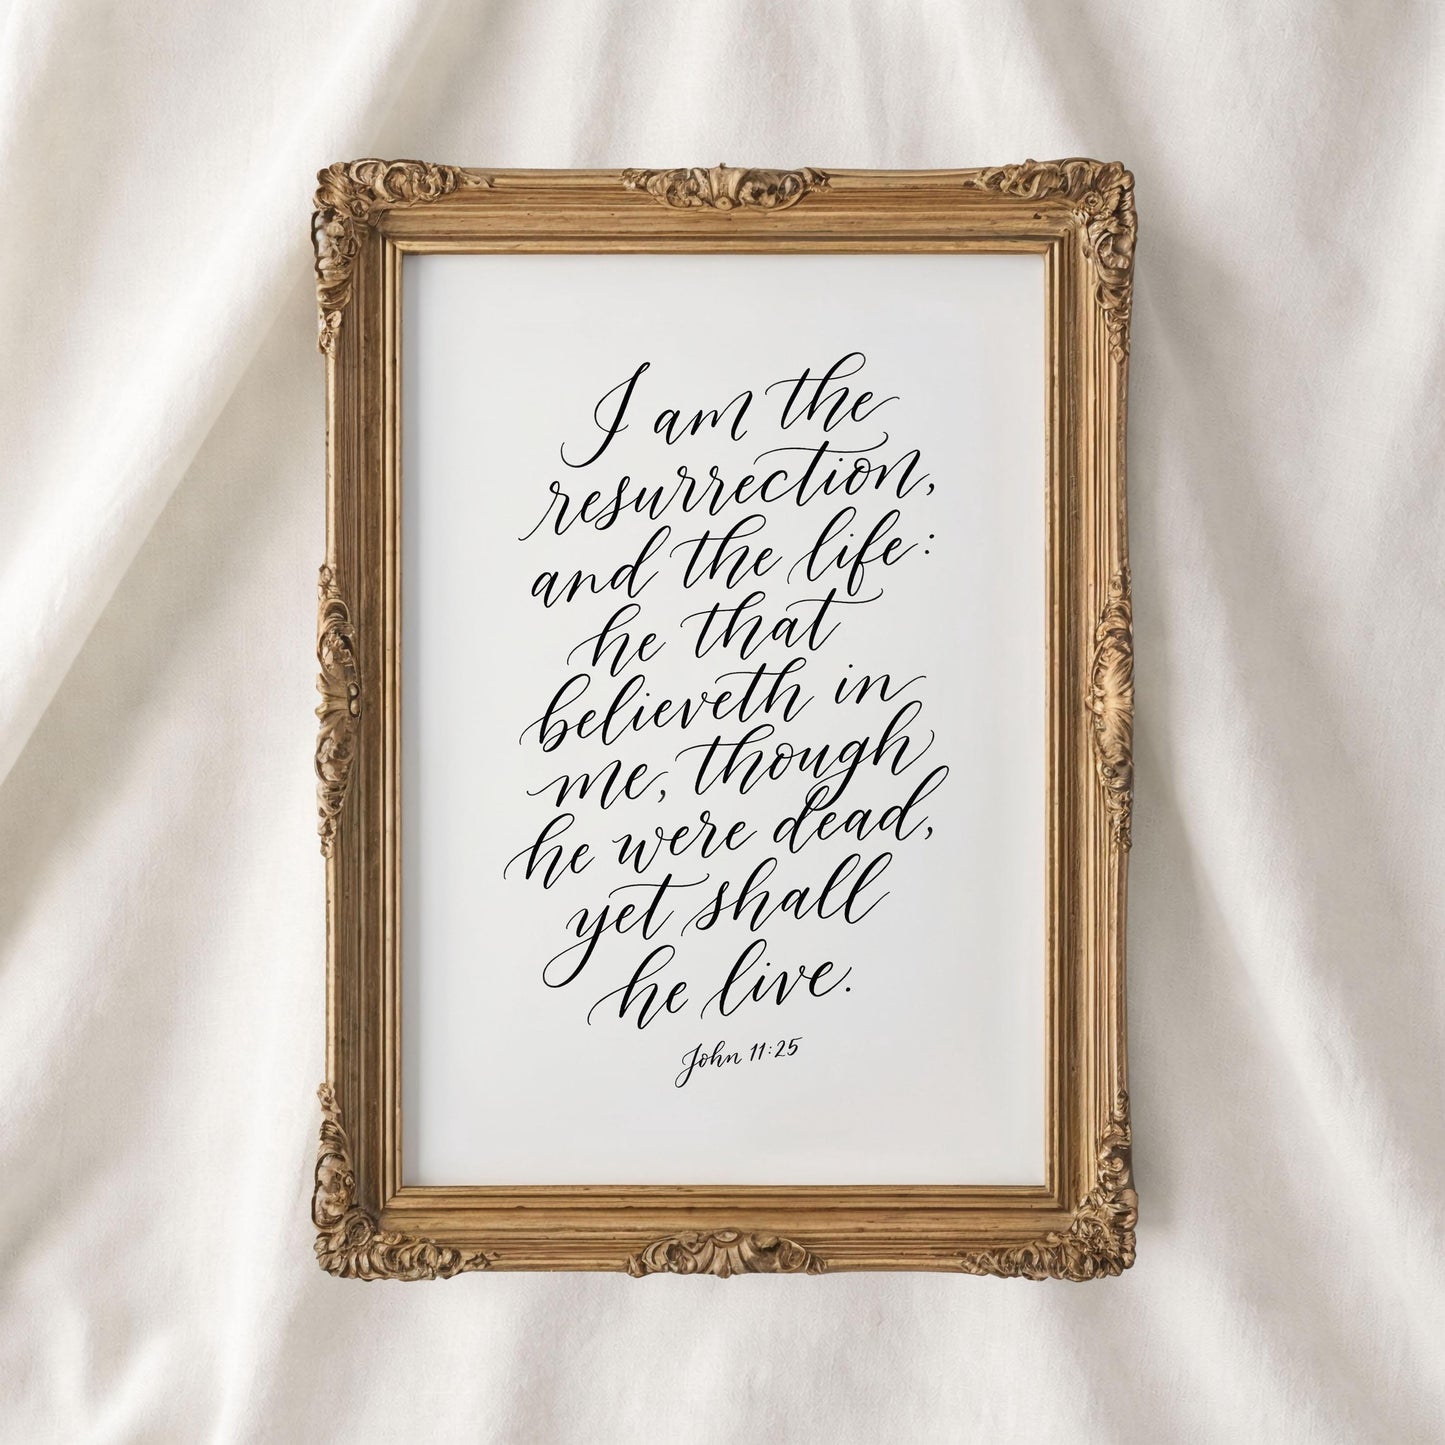 I am the
resurrection,
and the life:
he that
believeth in
me, though
he were dead,
yet shall
he live.
John 11:25